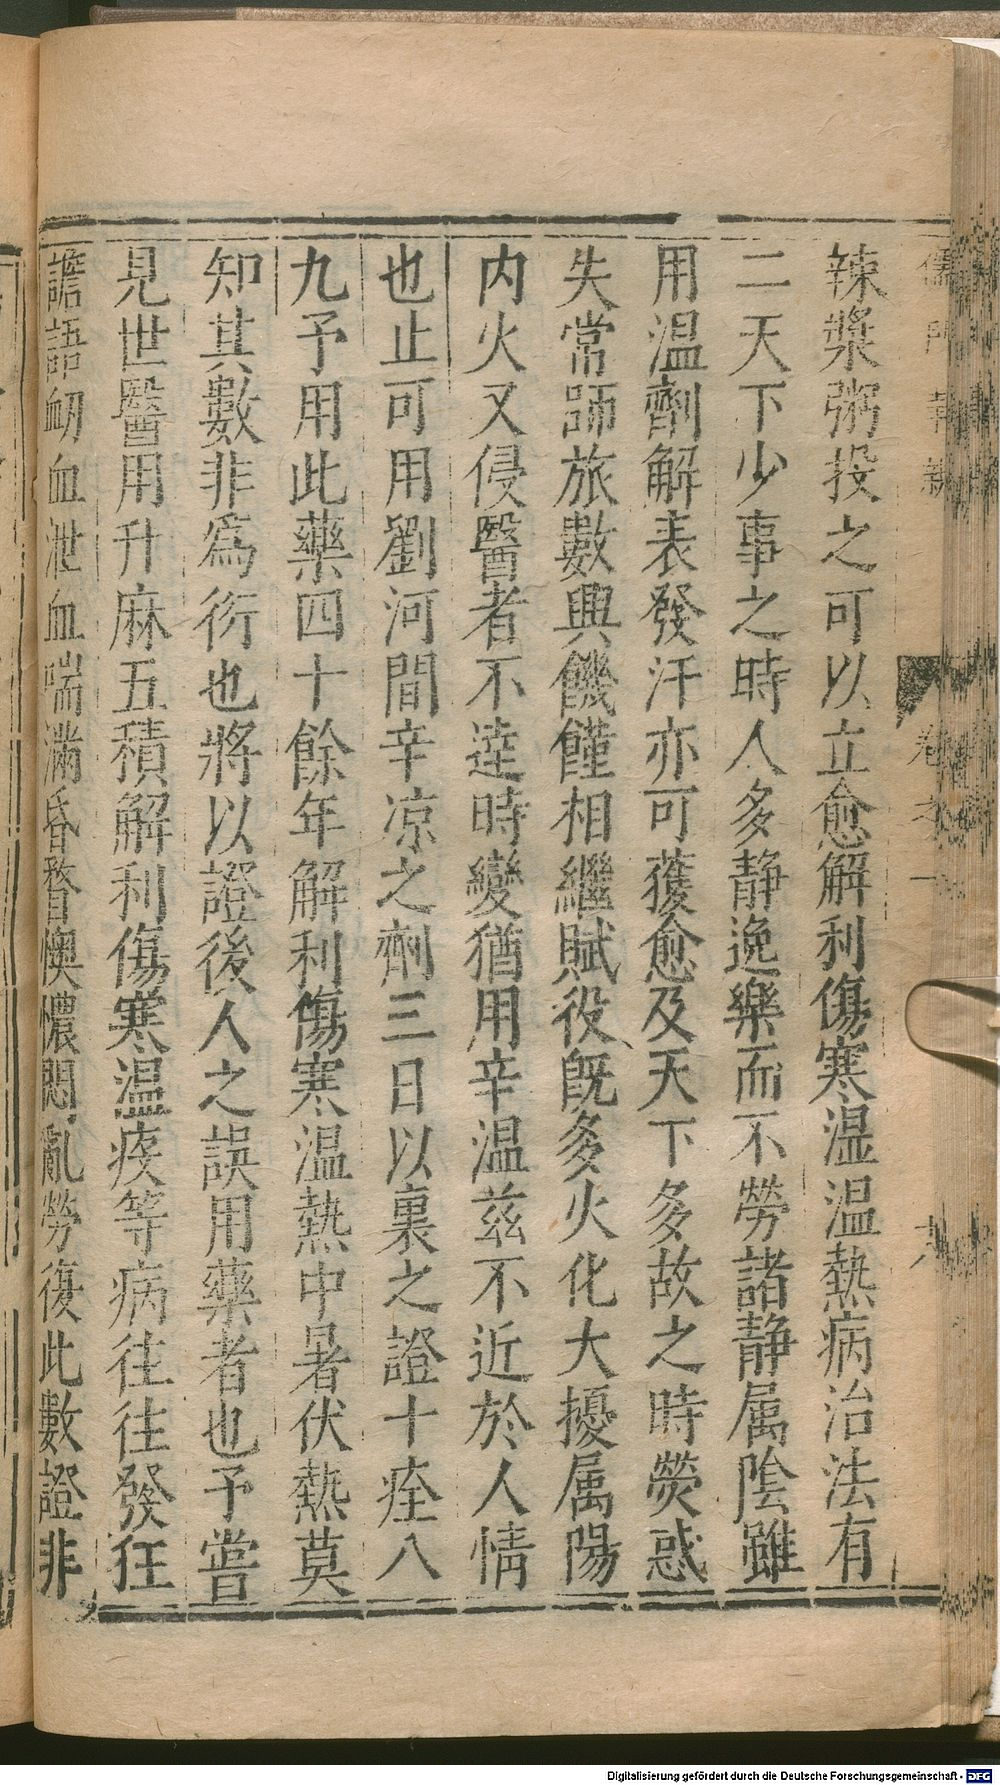 辣漿粥投之可以立愈解利傷寒濕温熱病治法有
二天下少事之時人多静逸樂而不勞諸静属陰雖
用温劑解表發汗亦可獲愈及天下多故之時熒惑
失常師旅數興饑饉相繼賦役旣多火化大擾属陽
内火又侵醫者不達時變猶用辛温兹不近於人情
也止可用劉河間辛凉之劑三日以裏之證十痊八
九予用此藥四十餘年解利傷寒温熱中暑伏熱莫
知其數非爲衒也將以證後人之誤用藥者也予嘗
見世醫用升麻五積解利傷寒温疫等病往往發狂
譫語衂血泄血喘滿昏瞀懊憹悶亂勞復此數證非
卷之一
Digitalisierung gefördert durch die Deutsche Forschungsgemeinschaft - DFG